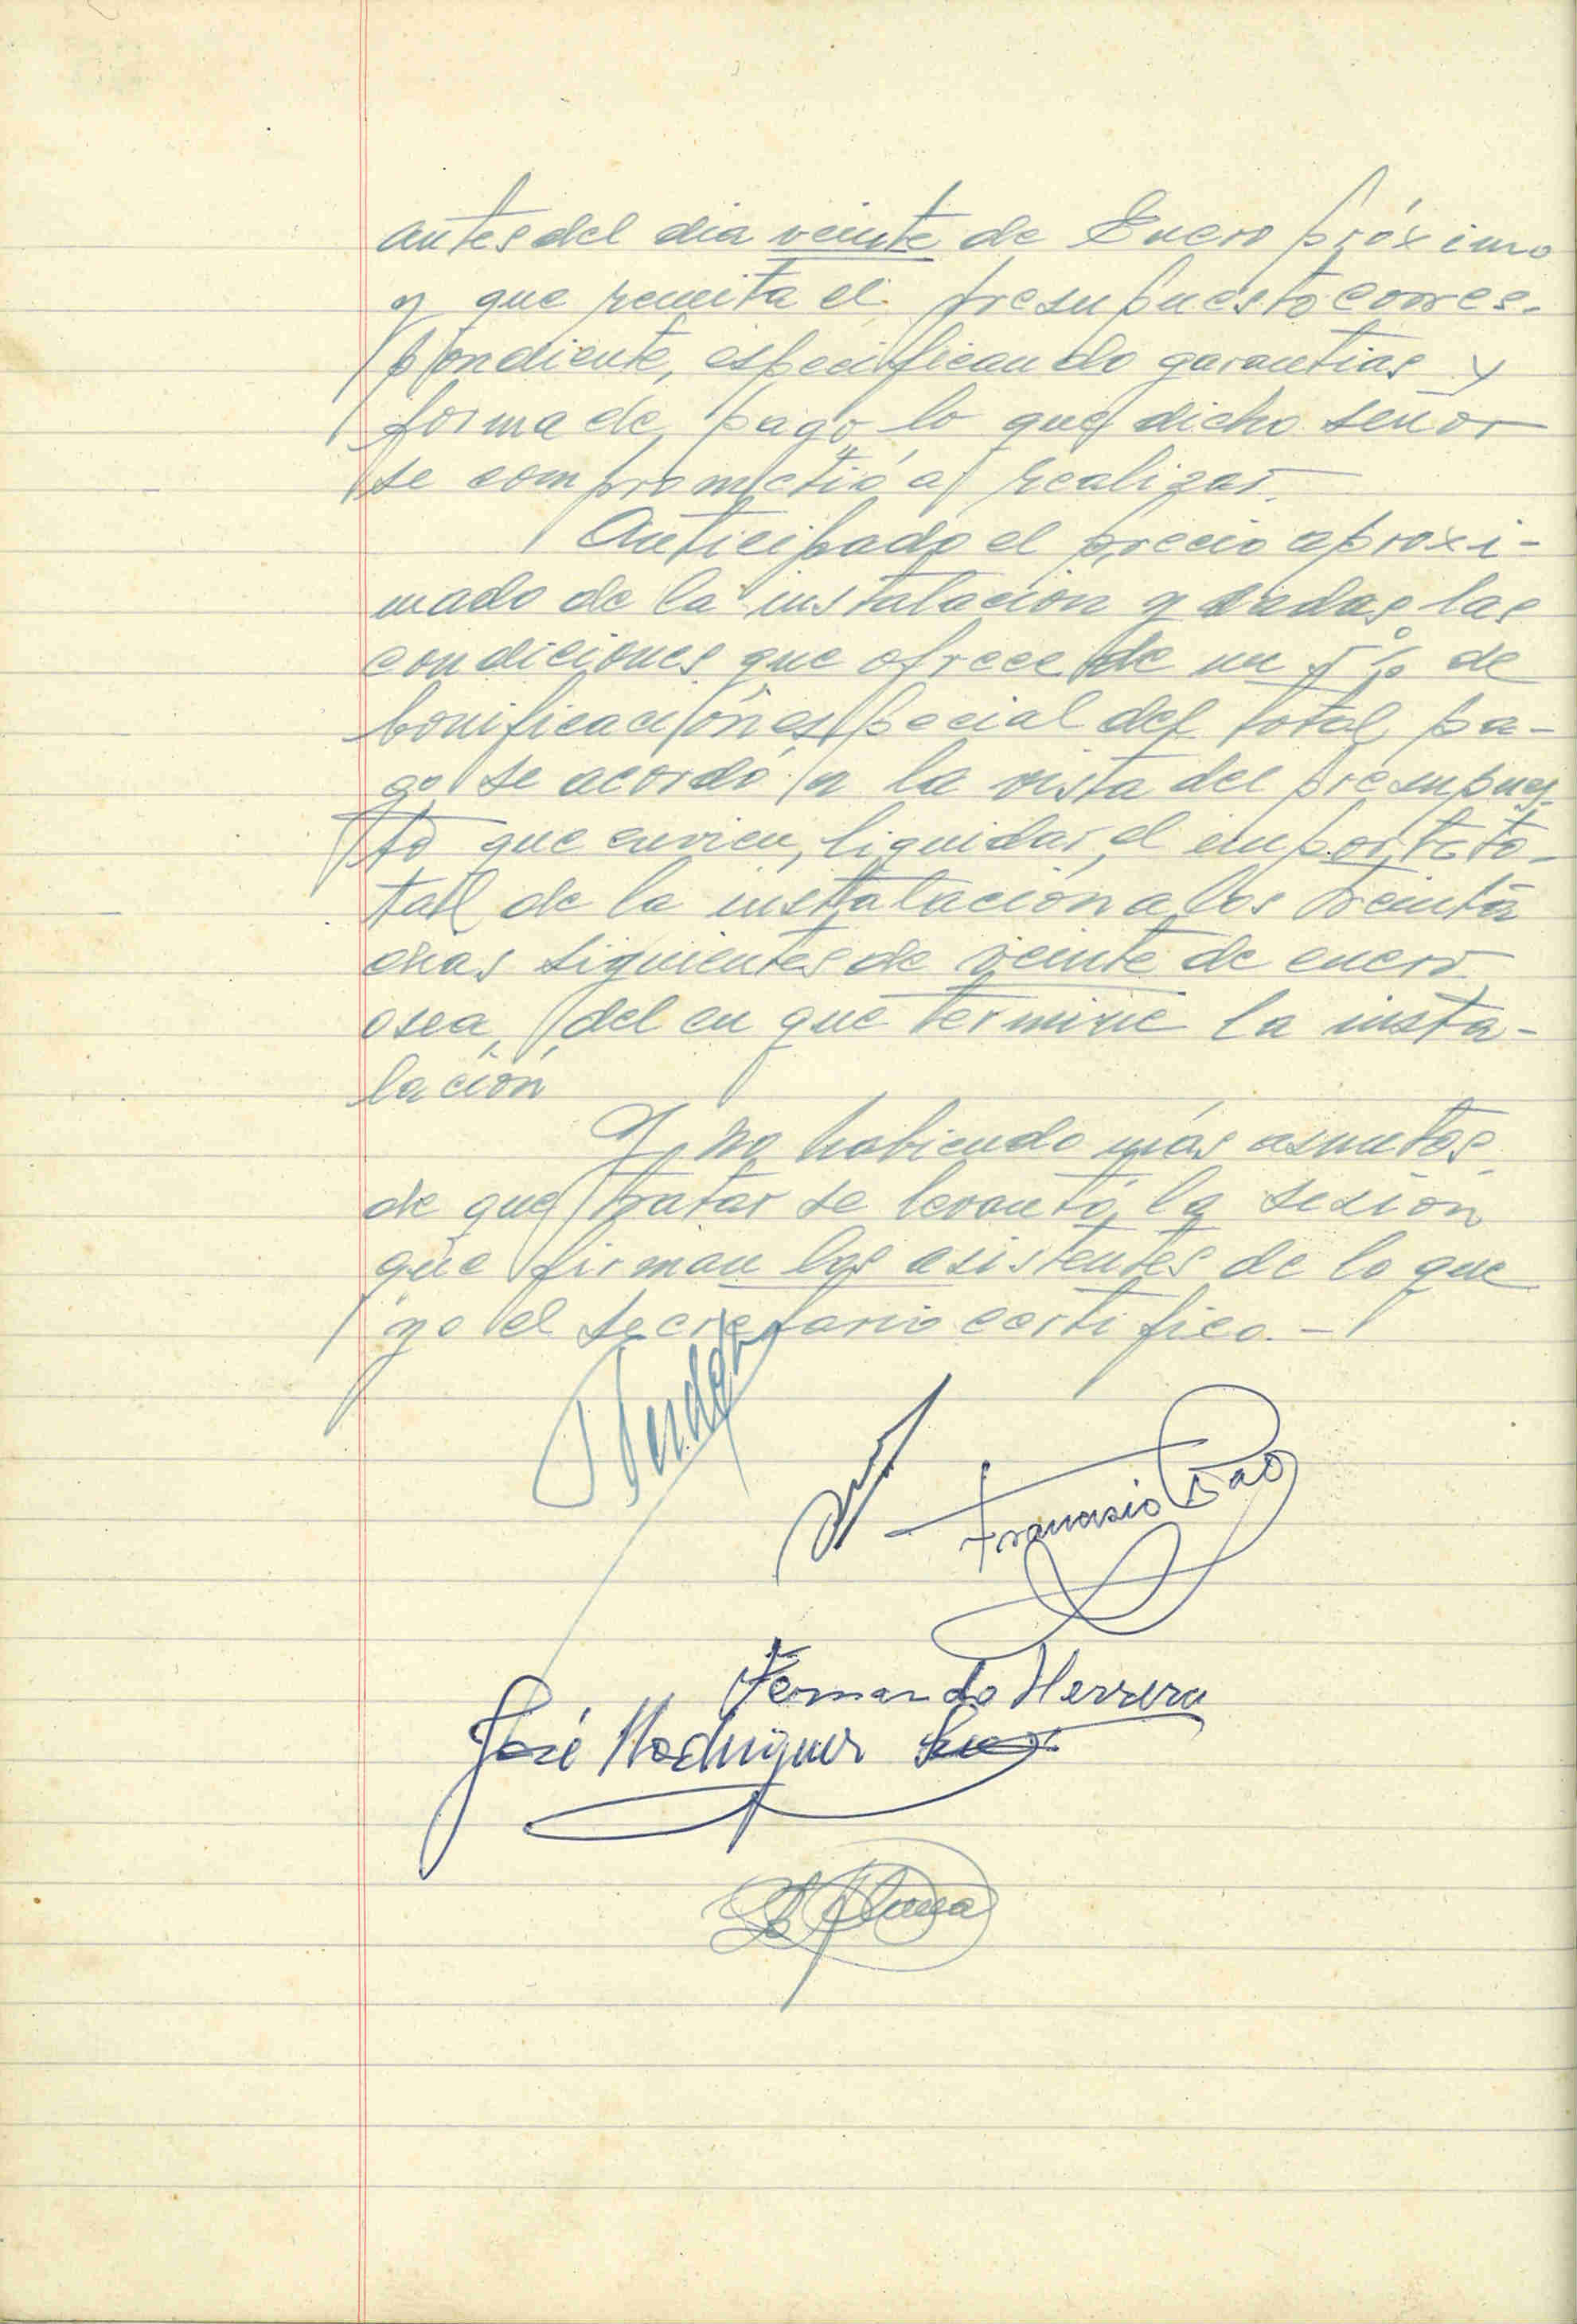 antes del dia veinte de Enero próximo
y que remita el presupuesto corres-
pondiente, especificando garantias y
forma de pago, lo que dicho señor
se comprometió a realizar.
Anticipado el precio aproxi-
mado de la instalación y dadas las
condiciones que ofrece de un 5% de
bonificación especial del total pa-
go se acordó a la vista del presupues-
to que envien, liquidar el importe to-
tal de la instalación a los treinta
dias siguientes de veinte de enero
osea, del en que termine la insta-
lación
Y no habiendo más asuntos
de que tratar se levantó la sesión
que firman los asistentes de lo que
yo el secretario certifico.-
Francisco
Fernando Herrera
José Rodriguez